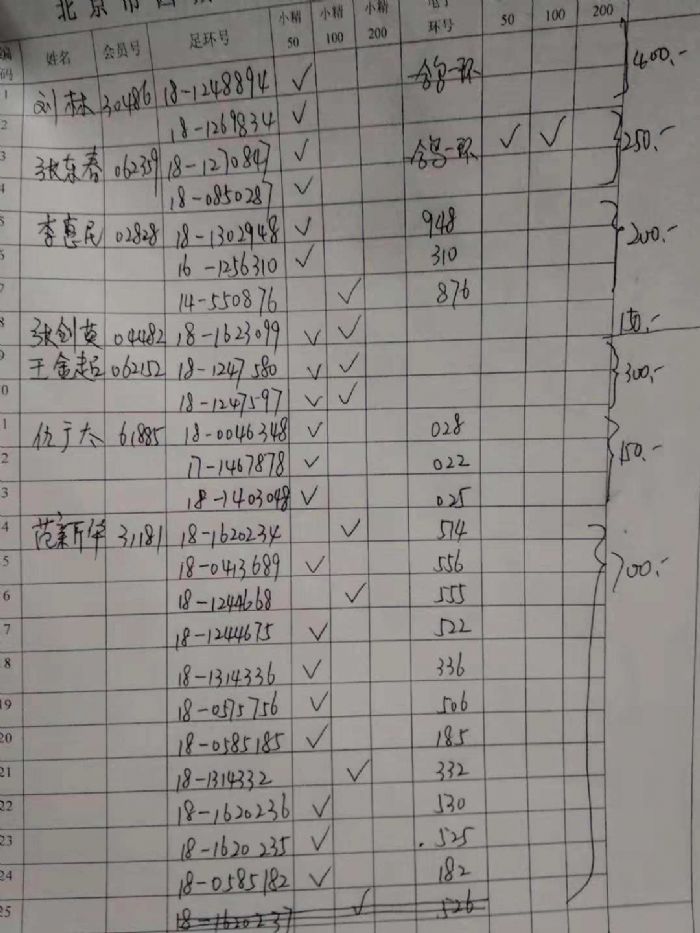 北京市西
编码 姓名 会员号 足环号 小精50 小精100 小精200 电子环号 50 100 200
1 刘林 30486 18-1248894 ✓ 鸽一环 400.-
2 18-1269834 ✓
3 张东春 062359 18-1270847 ✓ 鸽一环 ✓ ✓ 250.-
4 18-0850287 ✓
5 李惠民 02828 18-1302948 ✓ 948 200.-
6 16-1256310 ✓ 310
7 14-550876 ✓ 876
8 张剑英 04482 18-1623099 ✓ ✓ 150.-
9 王金起 062152 18-1247580 ✓ ✓ 300.-
0 18-1247597 ✓ ✓
1 仇于太 61885 18-0046348 ✓ 028 150.-
2 17-1467878 ✓ 022
3 18-1403048 ✓ 025
4 范新华 31181 18-1620234 ✓ 514 700.-
5 18-0413689 ✓ 556
6 18-1244668 ✓ 555
7 18-1244675 ✓ 522
8 18-1314336 ✓ 336
19 18-0575756 ✓ 506
20 18-0585185 ✓ 185
21 18-1314332 ✓ 332
22 18-1620236 ✓ 530
23 18-1620235 ✓ .525
24 18-0585182 ✓ 182
25 18-1620237 ✓ 526